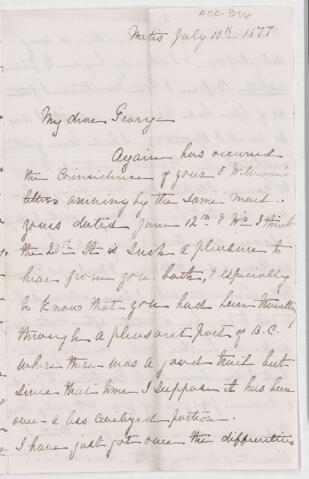 ACC. 326
Metis July 10th 1877
My dear George
Again has occurred
the coincidence of yours & William's
letters arriving by the same mail.
Yours dated June 12th & W's I think
the 20th. It is such a pleasure to
hear from you both, & especially
to know that you had been travelling
through a pleasant part of B.C.
where there was a good trail but
since that time I suppose it has been
over a less civilized portion.
I have just got over the difficulties